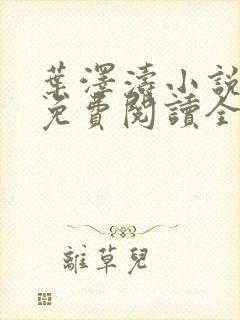 葉澤濤小說
免費閱讀全
離草兒